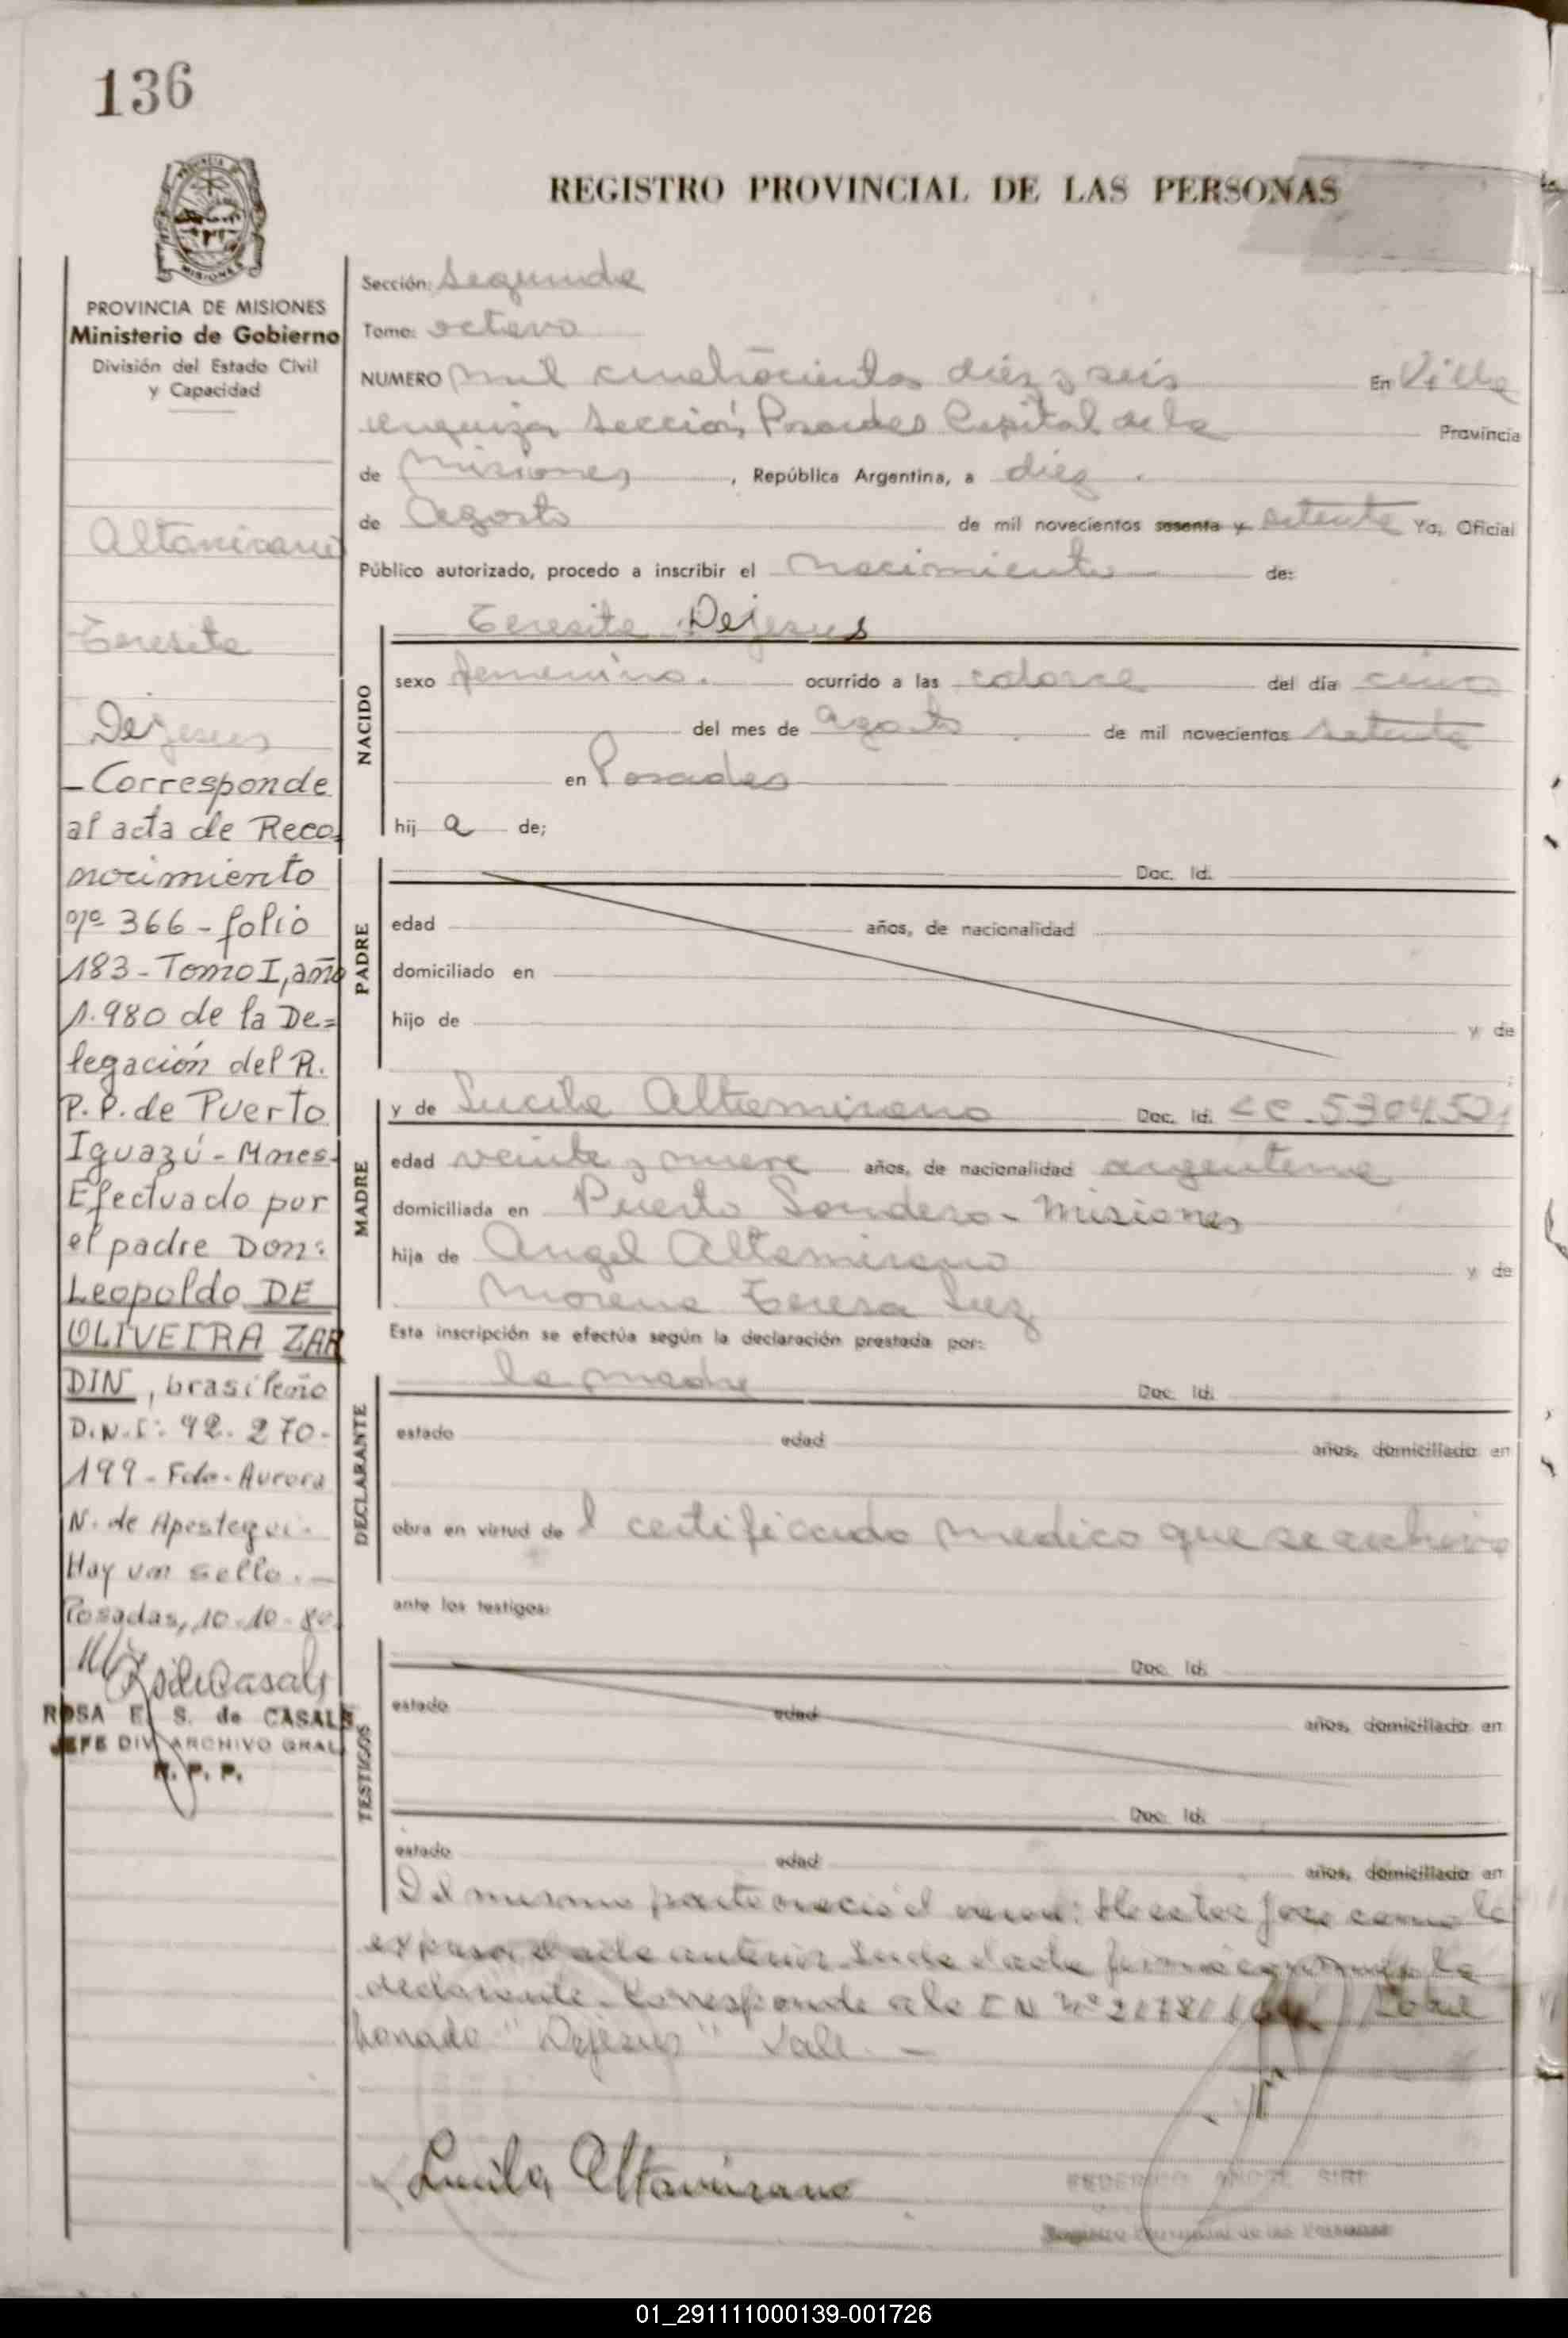 136
PROVINCIA DE MISIONES
Ministerio de Gobierno
División del Estado Civil
y Capacidad
Altamirano
Teresita
Dejesus
- Corresponde
al acta de Reco=
nocimiento
nº 366 - folio
183 - Tomo I, año
1.980 de la De=
legación del R.
P. P. de Puerto
Iguazú - Mnes.
Efectuado por
el padre Don:
Leopoldo DE
OLIVEIRA ZAR
DIN, brasileño
D.N.I: 92.270-
199 - Fdo. Aurora
N. de Apestegui.
Hay un sello. -
Posadas, 10-10-80.
ROSA E. S. de CASALS
JEFE DIV. ARCHIVO GRAL.
R. P. P.
REGISTRO PROVINCIAL DE LAS PERSONAS
Sección: Segunda
Tomo: octavo
NUMERO mil cuatrocientos diez y seis En Villa
Urquiza, Sección Posadas Capital de la Provincia
de Misiones, República Argentina, a diez
de Agosto de mil novecientos sesenta y setenta Yo, Oficial
Público autorizado, procedo a inscribir el nacimiento de:
NACIDO
Teresita Dejesus
sexo femenino. ocurrido a las catorce del día cinco
del mes de agosto de mil novecientos setenta
en Posadas
hij a de;
PADRE
Doc. Id.
edad años, de nacionalidad
domiciliado en
hijo de y de
MADRE
y de Lucila Altamirano Doc. Id. LC. 5304521
edad veinte y nueve años, de nacionalidad argentina
domiciliada en Puerto Londero - Misiones
hija de Angel Altamirano y de
Morena Teresa Luz
Esta inscripción se efectúa según la declaración prestada por:
DECLARANTE
la madre Doc. Id.
estado edad años, domiciliado en
obra en virtud de l certificado medico que se archiva
ante los testigos:
TESTIGOS
Doc. Id.
estado edad años, domiciliado en
Doc. Id.
estado edad años, domiciliado en
Del mismo parto nació el varon: Hector Jose como lo
expresa el acta anterior. Leida el acta firma conmigo la
declarante. Corresponde a la I N Nº
borrado "Dejesus" Vale. -
Lucila Altamirano
FEDERICO SIRI
Registro Provincial de las Personas
01_291111000139-001726